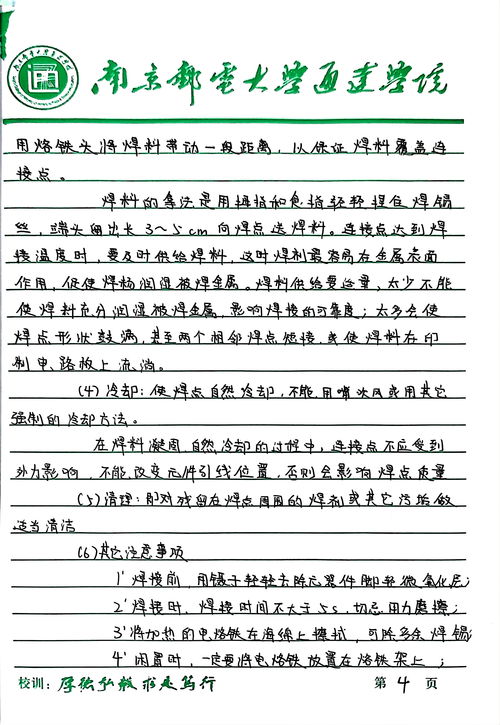 南京邮电大学通达学院
用烙铁头将焊料带动一段距离，以保证焊料覆盖连
接点。
焊料的拿法是用拇指和食指轻轻捏住焊锡
丝，端头留出长3～5cm向焊点送焊料。连接点达到焊
接温度时，要及时供给焊料，这时焊剂最容易在金属表面
作用，促使焊物润湿被焊金属。焊料供给要适量，太少不能
使焊料充分润湿被焊金属，影响焊接的可靠度；太多会使
焊点形状鼓满，甚至两个相邻焊点短接，或使焊料在印
制电路板上流淌。
(4)冷却：使焊点自然冷却，不能用嘴吹风或用其它
强制的冷却方法。
在焊料凝固、自然冷却的过程中，连接点不应受到
外力影响，不能改变元件引线位置，否则会影响焊点质量
(5)清理：即对残留在焊点周围的焊剂或其它污垢做
适当清洁
(6)其它注意事项
1'焊接前，用镊子轻轻去除元器件脚轻微氧化层；
2'焊接时，焊接时间不大于5s，切忌用力磨擦；
3'将加热的电烙铁在海绵上擦拭，可除多余焊锡；
4'闲置时，一定要将电烙铁放置在烙铁架上；
校训：厚德弘毅 求是笃行 第4页